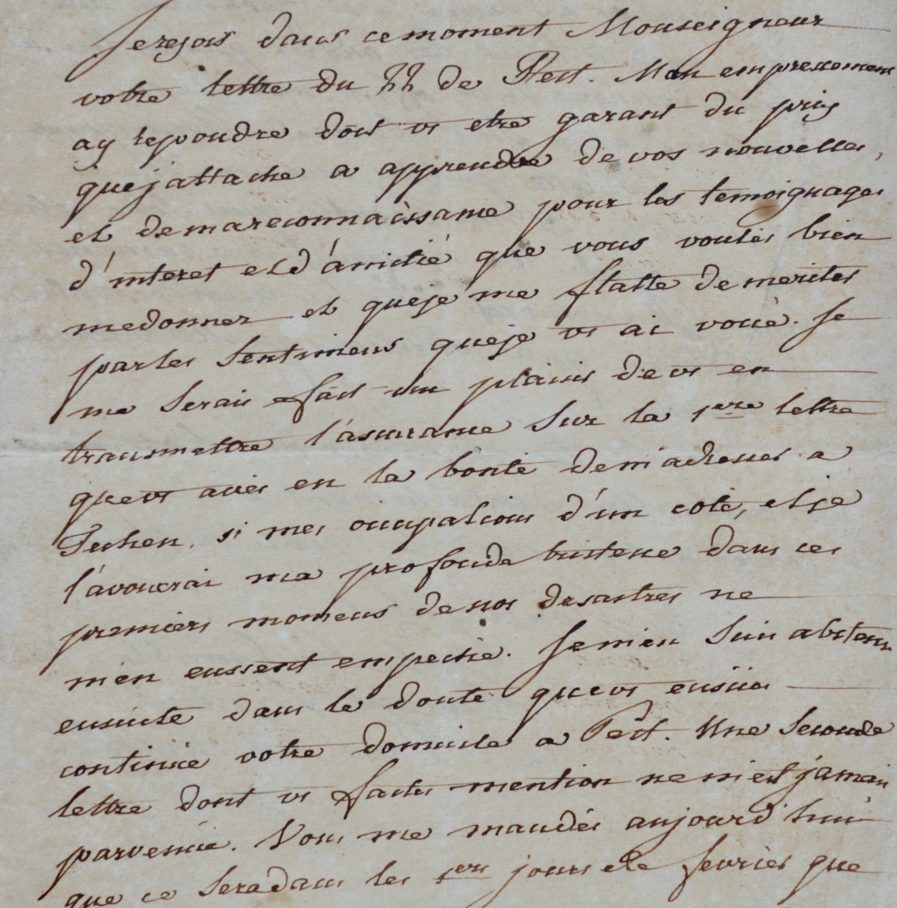 Je reçois dans ce moment Monseigneur
votre lettre du 22 de Pest. Mon empressement
a y repondre doit vs etre garant du prix
que j'attache a apprendre de vos nouvelles,
et de ma reconnaissance pour les temoignages
d'interet et d'amitié que vous voulés bien
me donner et que je me flatte de meriter
par les sentimens que je vs ai voué. Je
me serais fait un plaisir de vs en
transmettre l'assurance sur la 1ere lettre
que vs aviés eu la bonté de m'adresser a
si mes occupations d'un coté, et je
l'avouerai ma profonde tristesse dans ces
premiers momens de nos desastres ne
m'en eussent empeché. Je m'en suis abstenu
ensuite dans le doute que vs eussiés
continué votre domicile a Pest. Une seconde
lettre dont vs faites mention ne m'est jamais
parvenue. Vous me mandés aujourd'hui
que ce sera dans les 1ers jours de fevrier que